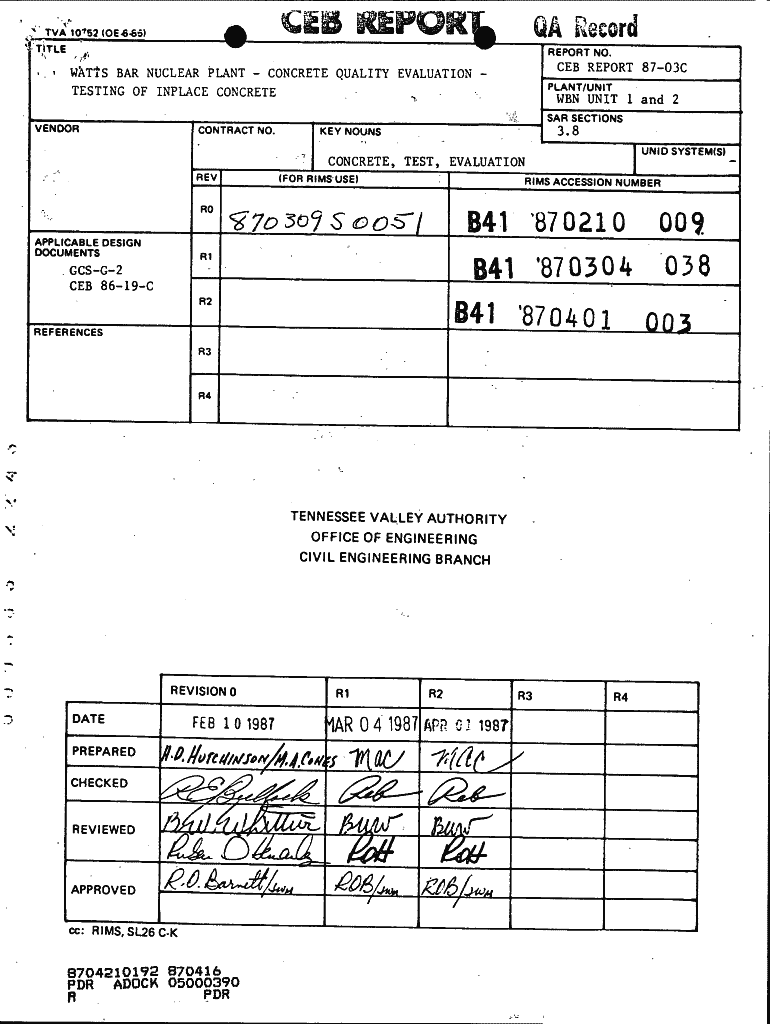 TVA 10752 (OE-6-86)
CEB REPORT
QA Record
TITLE
WATTS BAR NUCLEAR PLANT - CONCRETE QUALITY EVALUATION -
TESTING OF INPLACE CONCRETE
REPORT NO.
CEB REPORT 87-03C
PLANT/UNIT
WBN UNIT 1 and 2
SAR SECTIONS
3.8
VENDOR
CONTRACT NO.
KEY NOUNS
CONCRETE, TEST, EVALUATION
UNID SYSTEM(S)
REV
(FOR RIMS USE)
RIMS ACCESSION NUMBER
R0
870309S0051
B41 '870210 009
APPLICABLE DESIGN
DOCUMENTS
GCS-G-2
CEB 86-19-C
R1
B41 '870304 038
R2
B41 '870401 003
REFERENCES
R3
R4
TENNESSEE VALLEY AUTHORITY
OFFICE OF ENGINEERING
CIVIL ENGINEERING BRANCH
REVISION 0 R1 R2 R3 R4
DATE FEB 10 1987 MAR 04 1987 APR 01 1987
PREPARED H.D. HUTCHINSON/M.A. CONES MAC MAC
CHECKED REB REB
REVIEWED BWW BWW
ROH ROH
APPROVED R.O. Barnett/swm ROB/swm ROB/swm
cc: RIMS, SL26 C-K
8704210192 870416
PDR ADOCK 05000390
R PDR